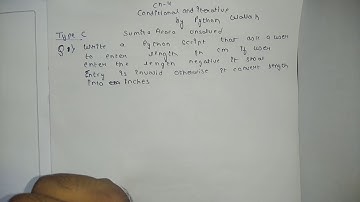 Ch-4
Conditional and iterative
by Python Wallah
Type C Sumita Arora unsolved
Q.1) Write a Python script that ask a user
to enter length in cm if user
enter the length negative it show
Entry is invalid otherwise it convert length
into inches